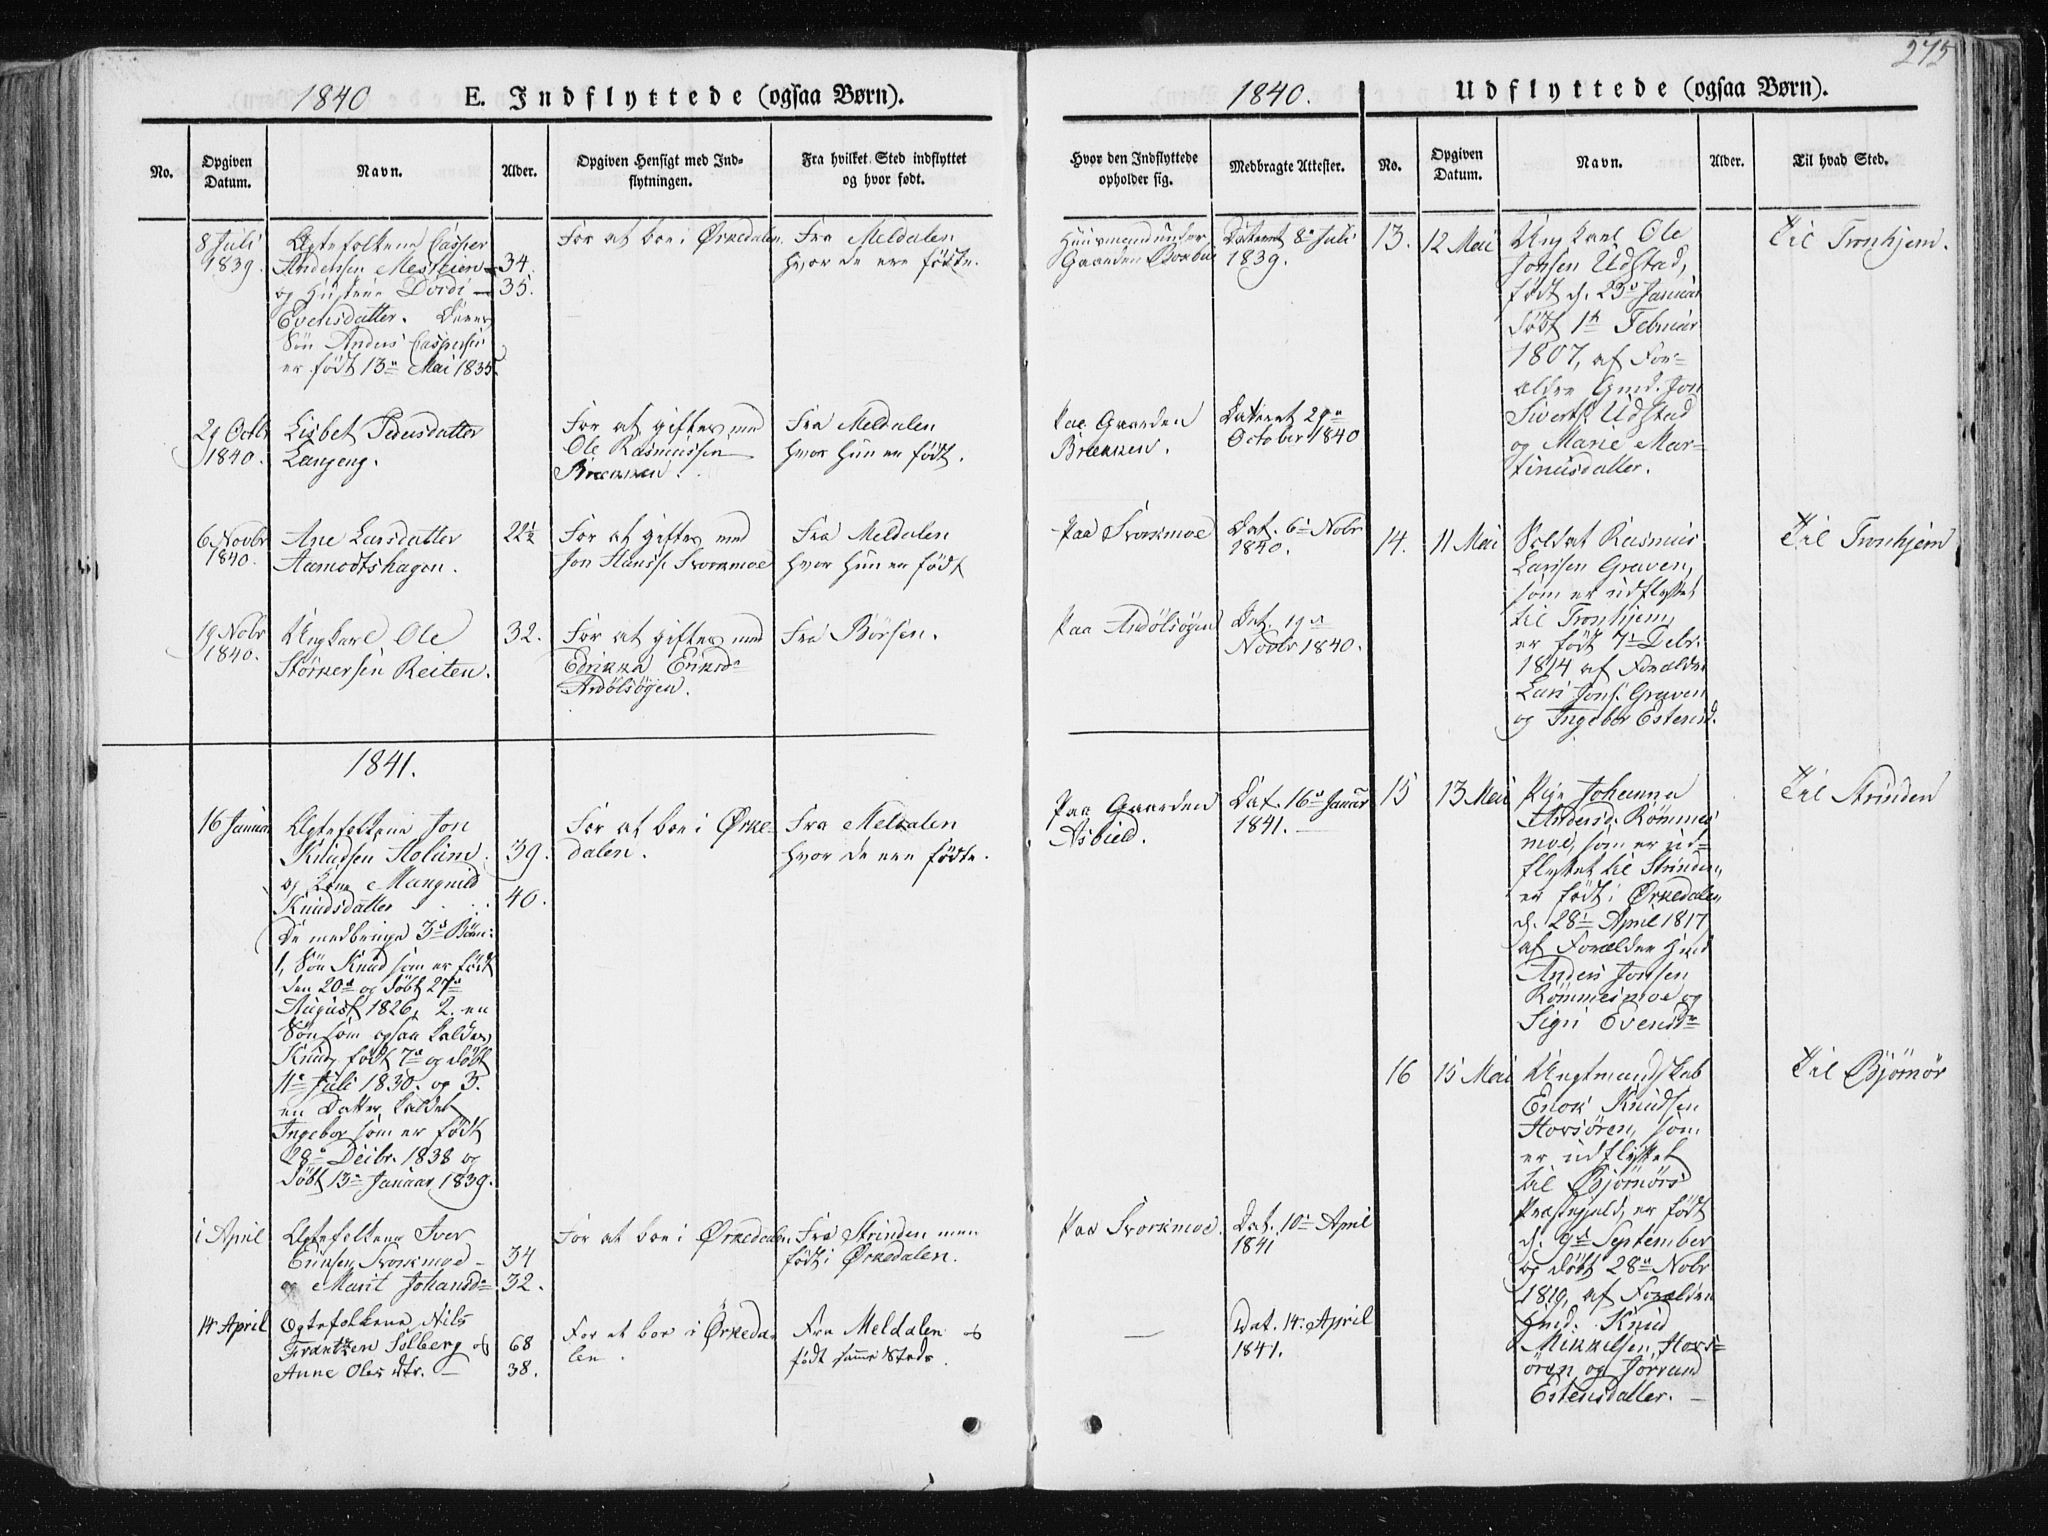 275
1840
E. Indflyttede (ogsaa Børn).
1840.
Udflyttede (ogsaa Børn).
No.
Opgiven
Datum.
Navn.
Alder.
Opgiven Hensigt med Ind-
flytningen.
Fra hvilket Sted indflyttet
og hvor født.
Hvor den Indflyttede
opholder sig.
Medbragte Attester.
No.
Opgiven
Datum.
Navn.
Alder.
Til hvad Sted.
8 Juli
1839.
Ægtefolkene Casper
Andersen
og Hustrue Dordi
Evensdatter. Deres
Søn Anders Caspersen
er født 13de Mai 1835.
34.
35.
For at boe i Ørkedalen.
Fra Meldalen
hvor de ere fødte.
Huusmand under
Gaarden
Dateret 8de Juli
1839.
29 Octbr
1840.
Lisbet Pedersdatter
Langeng.
For at giftes med
Ole Rasmussen
Brækken.
Fra Meldalen
hvor hun er født.
Paa Gaarden
Brækken.
Dateret 29de
October 1840
6 Novbr
1840.
Ane Larsdatter
Aamodtshagen.
22½
For at giftes med
Jon Hanss. Svorkmoe
Fra Meldalen
hvor hun er født
Paa Svorkmoe
Dat. 6te Nobr
1840.
19 Nobr
1840.
Ungkarl Ole
Størkersen Reiten.
32.
For at giftes med
Edrikka Eriksd.
Ardølsøgen.
Fra Børsen.
Paa Ardølsøgen
Dat. 19de
Novbr 1840.
1841.
16 Januar
Ægtefolkene Jon
Knudsen Holum
og Kone Mangnild
Knudsdatter
De medbringe 3de Børn:
1, Søn Knud som er født
den 20de og døbt 27de
August 1826, 2. en
Søn som ogsaa kaldes
Knud, født 7de og døbt
11te Juli 1830. og 3.
en Datter, kaldet
Ingebor som er født
28de Decbr. 1838 og
døbt 13de Januar 1839.
39.
40.
For at boe i Ørke-
dalen.
Fra Meldalen
hvor de ere fødte.
Paa Gaarden
Asbield.
Dat. 16de Januar
1841.
1 April
Ægtefolkene Iver
Erichsen Svorkmoe
og Marit Johansd.
34
32.
For at boe i Ørkedalen
Fra Strinden men
født i Ørkedalen.
Paa Svorkmoe.
Dat. 10de April
1841
14 April
Ogtefolkene Nils
Frantzen Solberg og
Anne Olesdtr.
68
38.
For at boe i Ørkeda-
len.
Fra Meldalen og
født samme Steds.
—
Dat. 14. April
1841.
13.
12 Mai
Ungkarl Ole
Jonsen Udstad,
født d. 23de Januar
døbt 1te Februar
1807, af For-
ældre Gmd. Jon
Siverts. Udstad
og Marie Mar-
tinusdatter.
Til Tronhjem.
14.
11 Mai
Soldat Rasmus
Larssen Graven,
som er udflyttet
til Tronhjem,
er født 7de Debr.
1814 af Forældre
Lars Jons. Graven
og Ingebor Estensd.
Til Tronhjem
15
13 Mai
Pige Johanna
Andersd. Rømmes-
moe, som er ud-
flyttet til Strinden,
er født i Ørkedalen
d. 28de April 1817
af Forældre Hmd
Anders Jonsen
Rømmesmoe og
Sigri Evensdr
Til Strinden
16
15 Mai
Ungtmandskab
Enok Knudsen
Hovsøren, som
er udflyttet
til Bjørnørs
Præstegjeld, er født
d. 9de September
og døbt 28de Nobr
1819, af Forældre
Hmd. Knud
Mikkelsen Hovs-
øren og Jørrand
Estensdatter.
Til Bjørnør